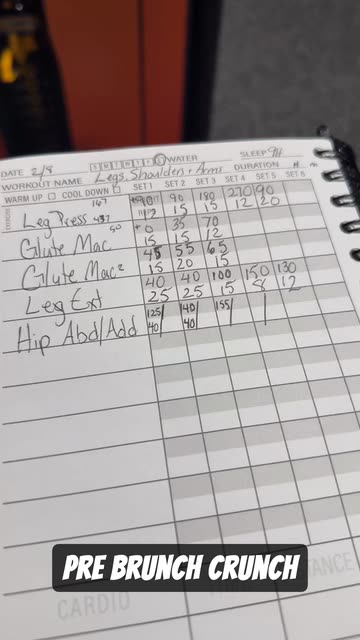 DATE 2/8 S M T W T F S WATER SLEEP 9H
WORKOUT NAME Legs, Shoulders + Arms DURATION H M
WARM UP COOL DOWN SET 1 SET 2 SET 3 SET 4 SET 5 SET 6
EXERCISE Leg Press 90 90 180 270 90
15 15 12 20
Glute Mac 0 35 70
15 15 12
Glute Mac² 45 55 65
15 20 15
Leg Ext 40 40 100 150 130
25 25 15 8 12
Hip Abd/Add 125/ 140/ 155/ / /
40 40
CARDIO DISTANCE
PRE BRUNCH CRUNCH